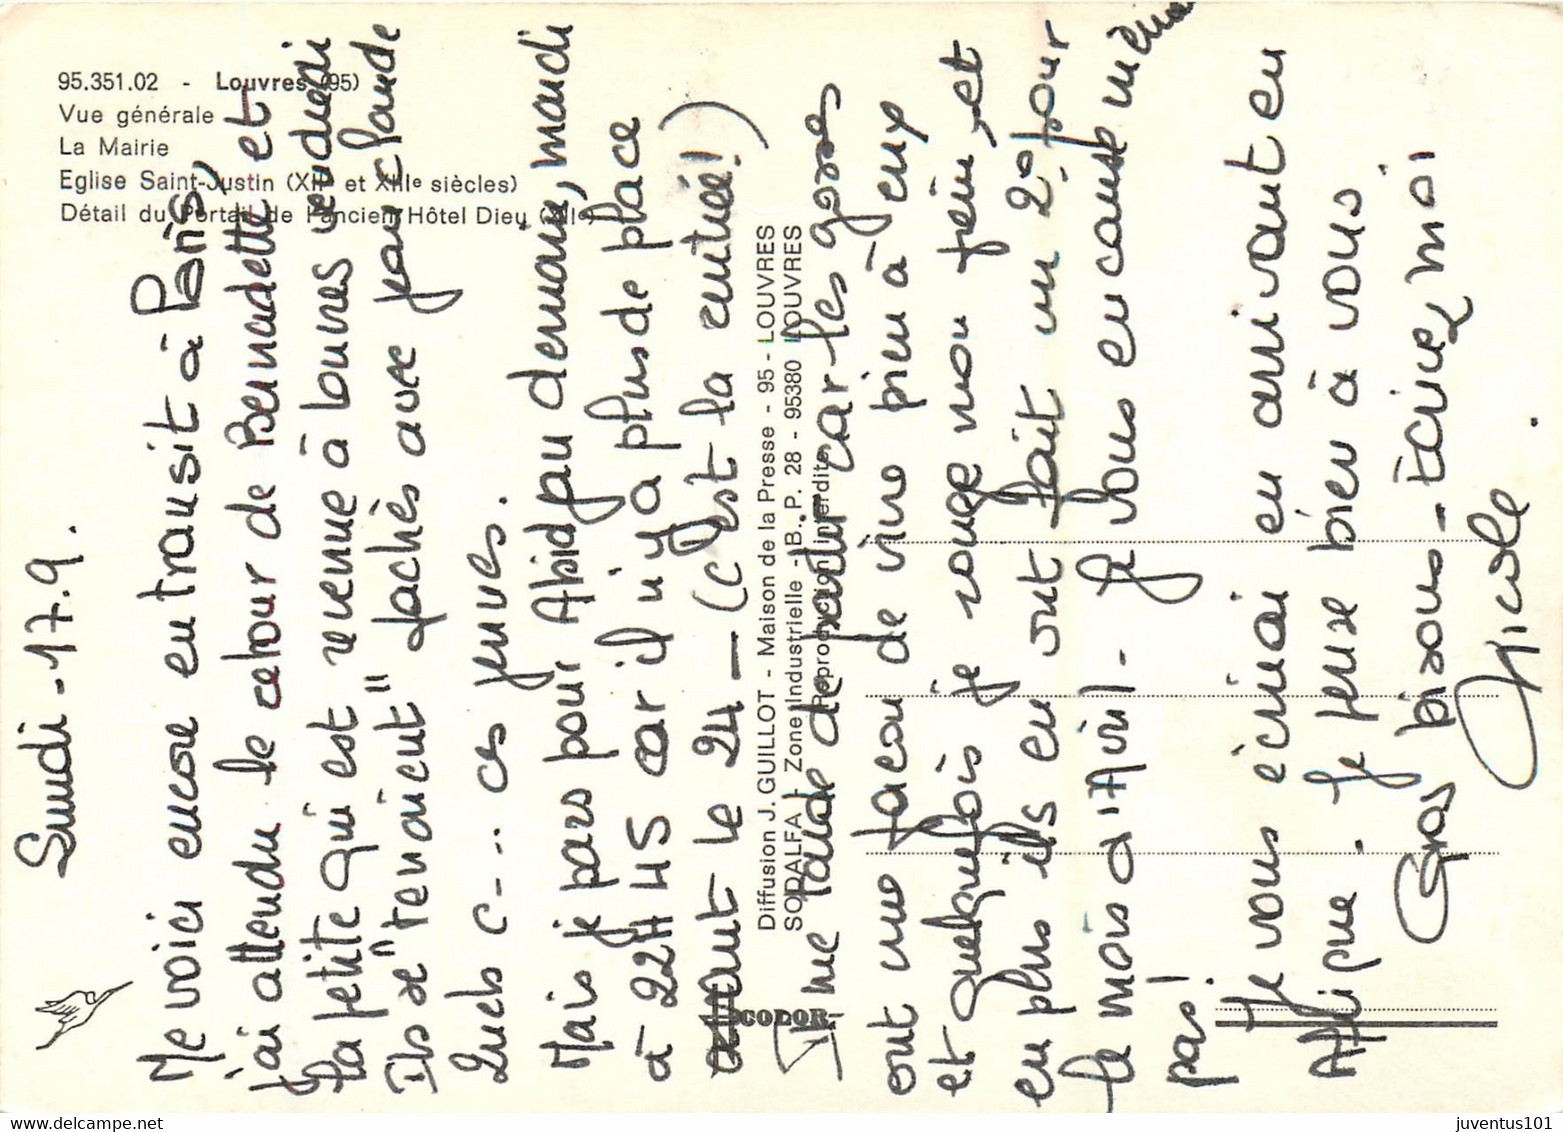 95.351.02 - Louvres (95)
Vue générale
La Mairie
Eglise Saint-Justin (XIIe et XIIIe siècles)
Détail du Portail de l'ancien Hôtel Dieu
Lundi - 17.9.
Me voici encore en transit à Paris,
j'ai attendu le retour de Bernadette et
la petite qui est revenue à Louvres vendredi
Ils se "tenaient" fachés avec Jean Claude
Quels c... ces jeunes.
Mais je pars pour Abidjan demain, mardi
à 22H45 car il n'y a plus de place
avant le 24 - (c'est la rentrée!)
Il me tarde de partir car les gosses
ont une facon de vivre bien à eux
et quelquefois je ronge mon frein, et
en plus ils en ont fait un 2° pour
le mois d'Avril - Je vous en cause même
pas!
Je vous écrirai en arrivant en
Afrique. Je pense bien à vous.
Gros bisous - Ecrivez moi
Nicole.
Diffusion J. GUILLOT - Maison de la Presse - 95 - LOUVRES
SODALFA - Zone Industrielle - B. P. 28 - 95380 LOUVRES
Reproduction interdite
COLOR
juventus101